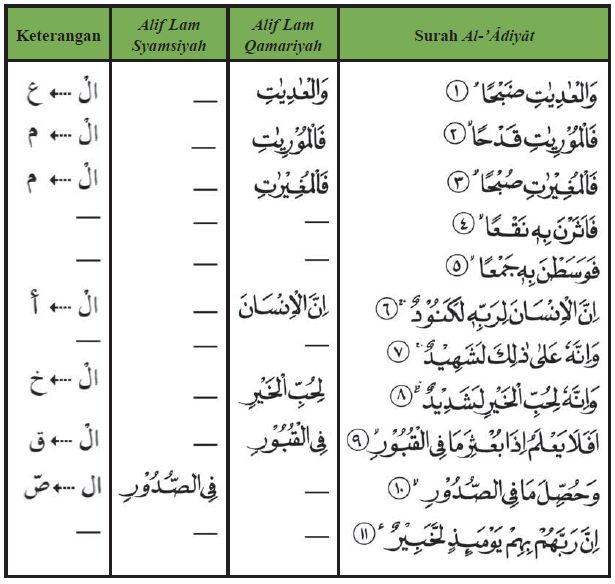 Keterangan Alif Lam Syamsiyah Alif Lam Qamariyah Surah Al-’Ādiyāt
وَالْعٰدِيٰتِ ضَبْحًاۙ ١ وَالْعٰدِيٰتِ — الْ ← ع
فَالْمُوْرِيٰتِ قَدْحًاۙ ٢ فَالْمُوْرِيٰتِ — الْ ← م
فَالْمُغِيْرٰتِ صُبْحًاۙ ٣ فَالْمُغِيْرٰتِ — الْ ← م
فَاَثَرْنَ بِهٖ نَقْعًاۙ ٤ — — —
فَوَسَطْنَ بِهٖ جَمْعًاۙ ٥ — — —
اِنَّ الْاِنْسَانَ لِرَبِّهٖ لَكَنُوْدٌۚ ٦ اِنَّ الْاِنْسَانَ — الْ ← أ
وَاِنَّهٗ عَلٰى ذٰلِكَ لَشَهِيْدٌۚ ٧ — — —
وَاِنَّهٗ لِحُبِّ الْخَيْرِ لَشَدِيْدٌۗ ٨ لِحُبِّ الْخَيْرِ — الْ ← خ
اَفَلَا يَعْلَمُ اِذَا بُعْثِرَ مَا فِى الْقُبُوْرِۙ ٩ فِى الْقُبُوْرِ — الْ ← ق
وَحُصِّلَ مَا فِى الصُّدُوْرِۙ ١٠ — فِى الصُّدُوْرِ ال ← صّ
اِنَّ رَبَّهُمْ بِهِمْ يَوْمَىِٕذٍ لَّخَبِيْرٌ ١١ — — —